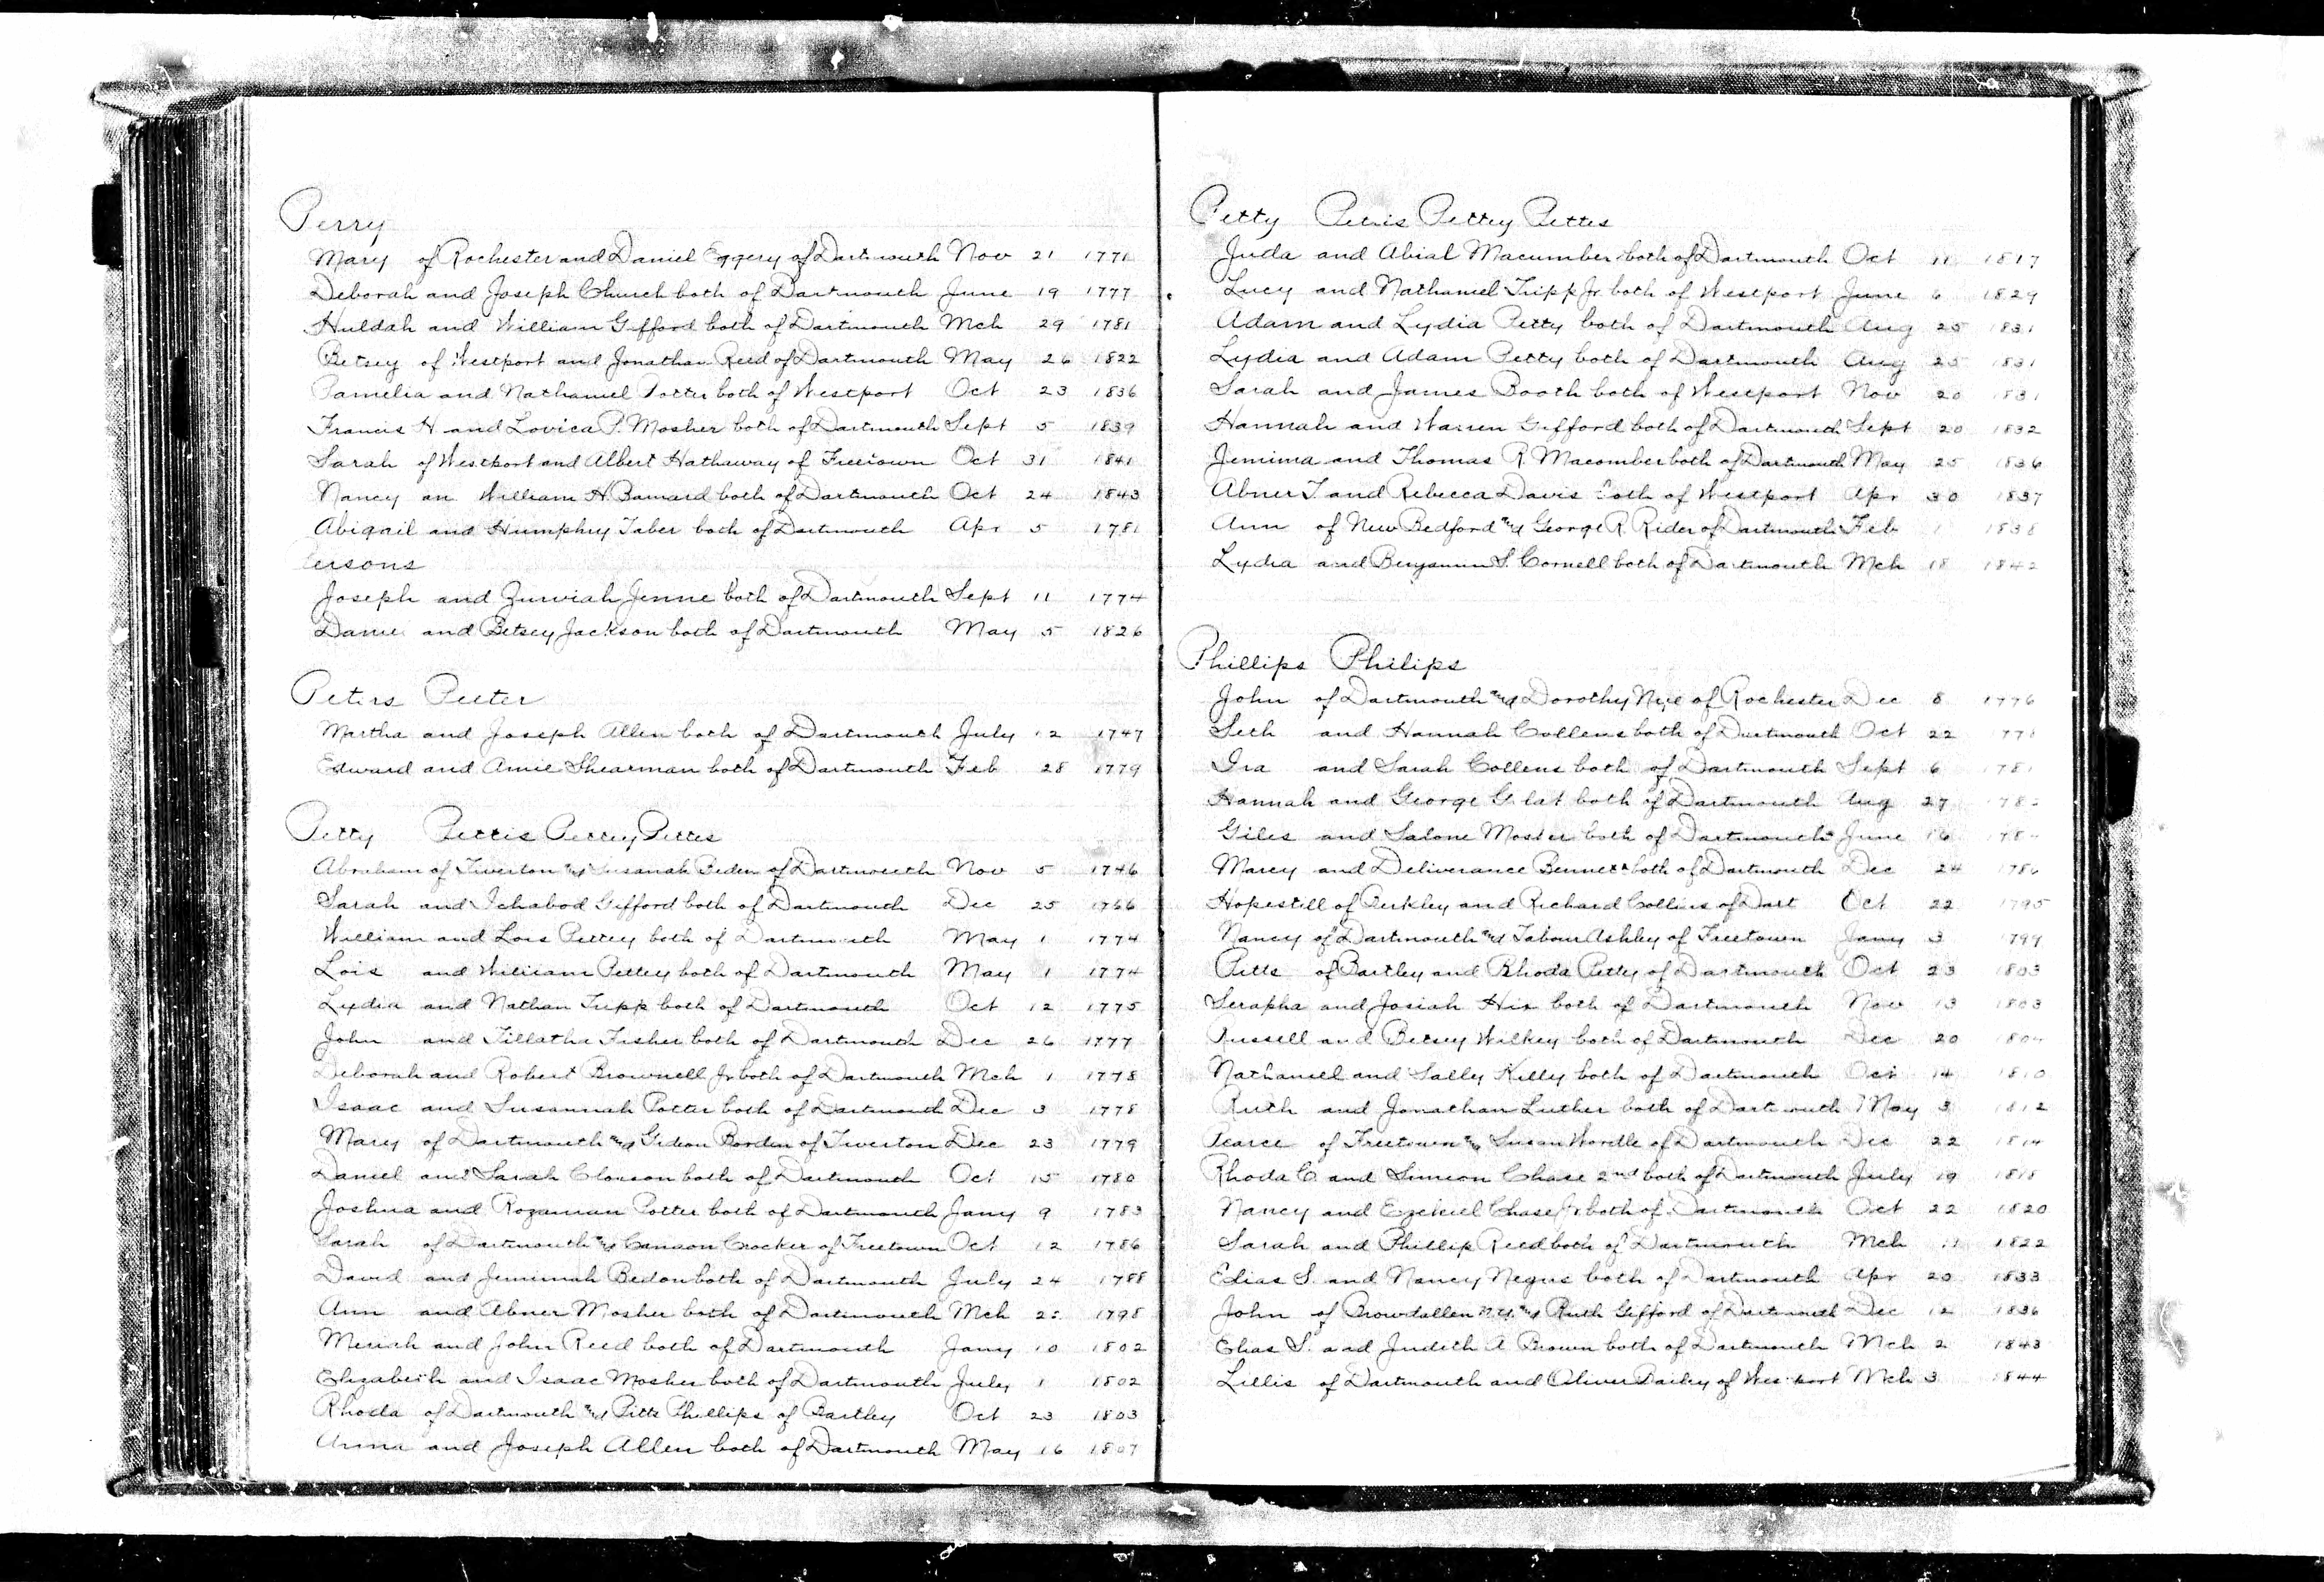 Perry
Mary of Rochester and Daniel Eggery of Dartmouth Nov 21 1771
Deborah and Joseph Church both of Dartmouth June 19 1777
Huldah and William Gifford both of Dartmouth Mch 29 1781
Betsey of Westport and Jonathan Reed of Dartmouth May 26 1822
Pamelia and Nathaniel Potter both of Westport Oct 23 1836
Francis H and Lovica P. Mosher both of Dartmouth Sept 5 1839
Sarah of Westport and Albert Hathaway of Freetown Oct 31 1841
Nancy an William H Barnard both of Dartmouth Oct 24 1843
Abigail and Humphry Taber both of Dartmouth Apr 5 1781
Persons
Joseph and Zurviah Jenne both of Dartmouth Sept 11 1774
Daniel and Betsey Jackson both of Dartmouth May 5 1826
Peters Peeter
Martha and Joseph Allen both of Dartmouth July 12 1747
Edward and Amie Shearman both of Dartmouth Feb 28 1779
Petty Pettis Pettey Pettes
Abraham of Tiverton and Susanah Beden of Dartmouth Nov 5 1746
Sarah and Ichabod Gifford both of Dartmouth Dec 25 1766
William and Lois Pettey both of Dartmouth May 1 1774
Lois and William Pettey both of Dartmouth May 1 1774
Lydia and Nathan Tripp both of Dartmouth Oct 12 1775
John and Tillatha Fisher both of Dartmouth Dec 26 1777
Deborah and Robert Brownell Jr both of Dartmouth Mch 1 1778
Isaac and Susannah Potter both of Dartmouth Dec 3 1778
Mary of Dartmouth and Gideon Borden of Tiverton Dec 23 1779
Daniel and Sarah Closson both of Dartmouth Oct 15 1780
Joshua and Rozaman Potter both of Dartmouth Jany 9 1783
Sarah of Dartmouth and Canaon Crocker of Freetown Oct 12 1786
David and Jemimah Bedon both of Dartmouth July 24 1788
Ann and Abner Mosher both of Dartmouth Mch 1798
Meriah and John Reed both of Dartmouth Jany 10 1802
Elizabeth and Isaac Mosher both of Dartmouth July 1 1802
Rhoda of Dartmouth and Pitts Phillips of Bartley Oct 23 1803
Anna and Joseph Allen both of Dartmouth May 16 1807
Petty Pettis Pettey Pettes
Juda and Abial Macumber both of Dartmouth Oct 11 1817
Lucy and Nathaniel Tripp Jr both of Westport June 6 1829
Adam and Lydia Petty both of Dartmouth Aug 25 1831
Lydia and Adam Petty both of Dartmouth Aug 25 1831
Sarah and James Booth both of Westport Nov 20 1831
Hannah and Warren Gifford both of Dartmouth Sept 20 1832
Jemima and Thomas R. Macomber both of Dartmouth May 25 1836
Abner T. and Rebecca Davis both of Westport Apr 30 1837
Ann of New Bedford and George R. Rider of Dartmouth Feb 1 1838
Lydia and Benjamin S. Cornell both of Dartmouth Mch 18 1842
Phillips Philips
John of Dartmouth and Dorothy Nye of Rochester Dec 8 1776
Seth and Hannah Collens both of Dartmouth Oct 22
Ira and Sarah Collens both of Dartmouth Sept 6 1781
Hannah and George both of Dartmouth Aug 27
Giles and Salone Mosher both of Dartmouth June 16
Marcy and Deliverance Bennett both of Dartmouth Dec 24 1786
Hopestill of Berkley and Richard Collins of Dart Oct 22 1795
Nancy of Dartmouth and Tabour Ashley of Freetown Jany 3 1799
Pitts of Bartley and Rhoda Petty of Dartmouth Oct 23 1803
Serapha and Josiah Hix both of Dartmouth Nov 13 1803
Russell and Betsey Wilkey both of Dartmouth Dec 20 1804
Nathaniell and Sally Kelly both of Dartmouth Oct 14 1810
Ruth and Jonathan Luther both of Dartmouth May 3 1812
Pearce of Freetown and Susan Wordle of Dartmouth Dec 22 1814
Rhoda C. and Simeon Chase 2nd both of Dartmouth July 19 1818
Nancy and Ezekiel Chase Jr both of Dartmouth Oct 22 1820
Sarah and Phillip Reed both of Dartmouth Mch 11 1822
Elias S. and Nancy Negus both of Dartmouth Apr 20 1833
John of N.Y. and Ruth Gifford of Dartmouth Dec 12 1836
Elias S. and Judith A Brown both of Dartmouth Mch 2 1843
Lillis of Dartmouth and Oliver Dailey of Westport Mch 3 1844